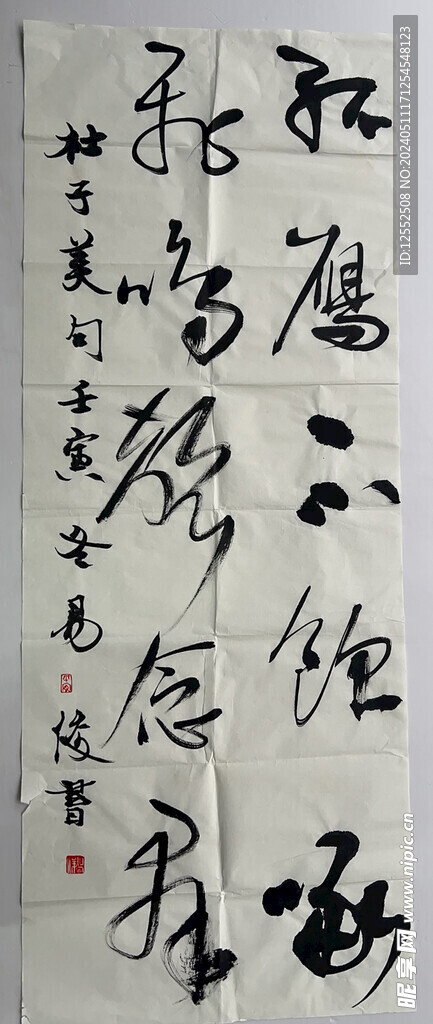 孤雁不饮啄
飞鸣声念群
杜子美句壬寅冬易俊书
昵享网 www.nipic.cn
ID:12552508 NO:20240511171254548123